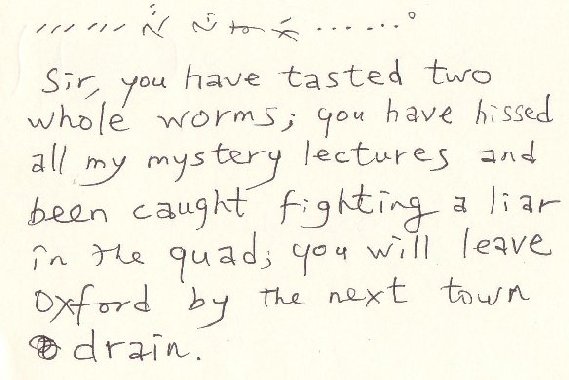 Sir, you have tasted two
whole worms; you have hissed
all my mystery lectures and
been caught fighting a liar
in the quad; you will leave
Oxford by the next town
drain.